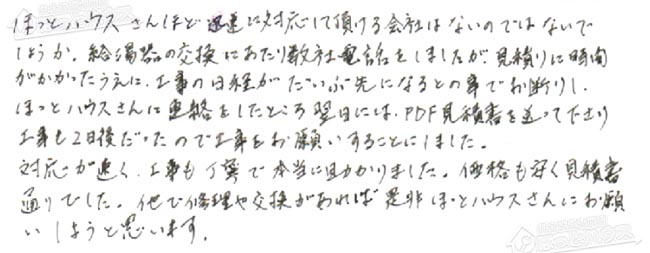 ほっとハウスさんほど迅速に対応して頂ける会社はないのではないで
しょうか。給湯器の交換にあたり数社電話をしましたが、見積りに時間
がかかったうえに、工事の日程がだいぶ先になるとの事でお断りし、
ほっとハウスさんに連絡をしたところ翌日には、PDF見積書を送って下さり
工事も2日後だったので工事をお願いすることにしました。
対応が速く、工事も丁寧で本当に助かりました。価格も安く見積書
通りでした。他で修理や交換があれば是非ほっとハウスさんにお願
いしようと思います。